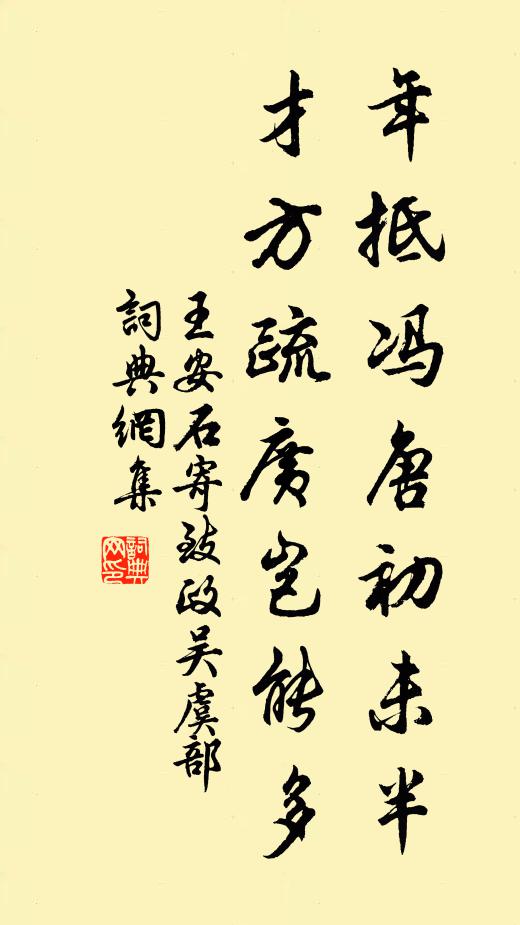 年抵冯唐初未半
才方疏廣岂能多
王安石寄致政吴虞部
詞典網集
詞典網印